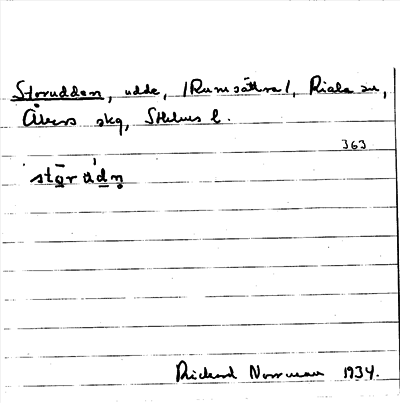 Storudden, udde, /Rumsättra/, Riala sn,
Åkers skg, Sthlms l.
363
stōr ùdn̥
Rickard Norrman 1934.